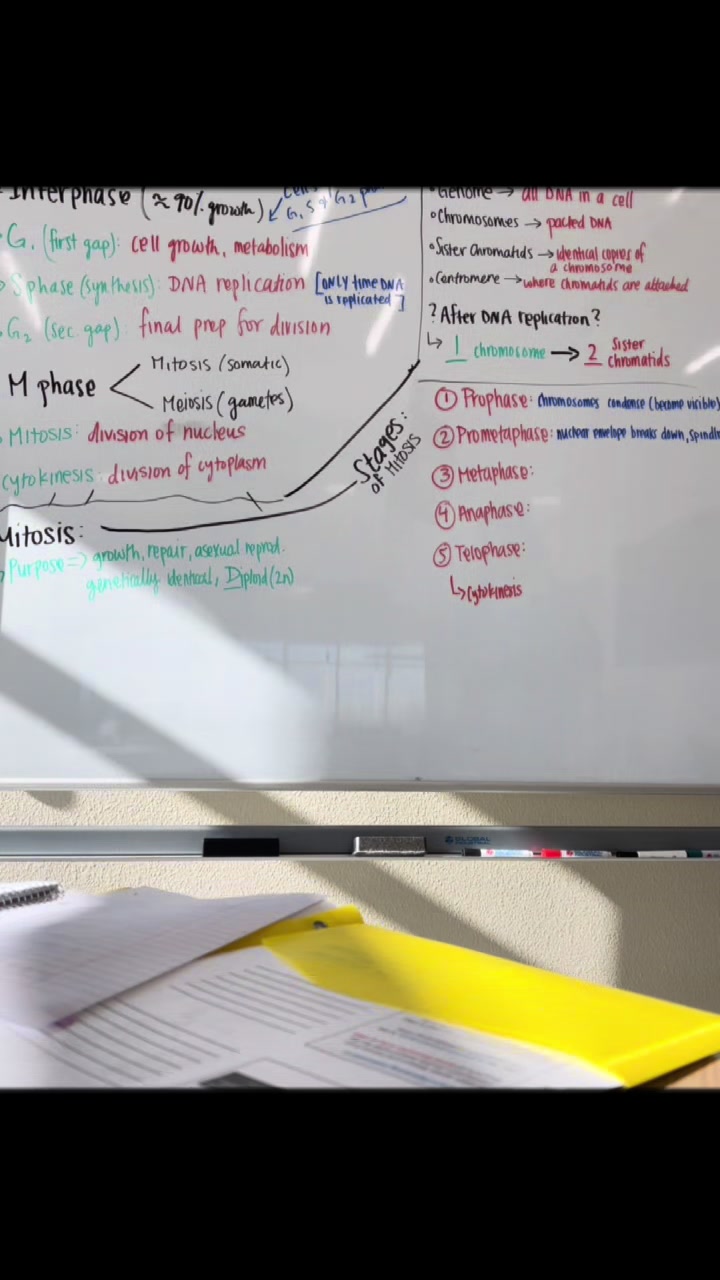 Interphase (≈ 90% growth)
G₁ (first gap): cell growth, metabolism
S phase (synthesis): DNA replication [ONLY time DNA
is replicated]
G₂ (sec. gap): final prep for division
M phase
Mitosis (somatic)
Meiosis (gametes)
Mitosis: division of nucleus
cytokinesis: division of cytoplasm
Mitosis:
Purpose => growth, repair, asexual reprod.
genetically identical, Diploid (2n)
Stages:
of Mitosis
•Genome → all DNA in a cell
•Chromosomes → packed DNA
•Sister Chromatids → identical copies of
a chromosome
•Centromere → where chromatids are attached
?After DNA replication?
↳ 1 chromosome → 2 Sister
chromatids
① Prophase: chromosomes condense (become visible)
② Prometaphase: nuclear envelope breaks down, spindle
③ Metaphase:
④ Anaphase:
⑤ Telophase:
↳ Cytokinesis
GLOBAL